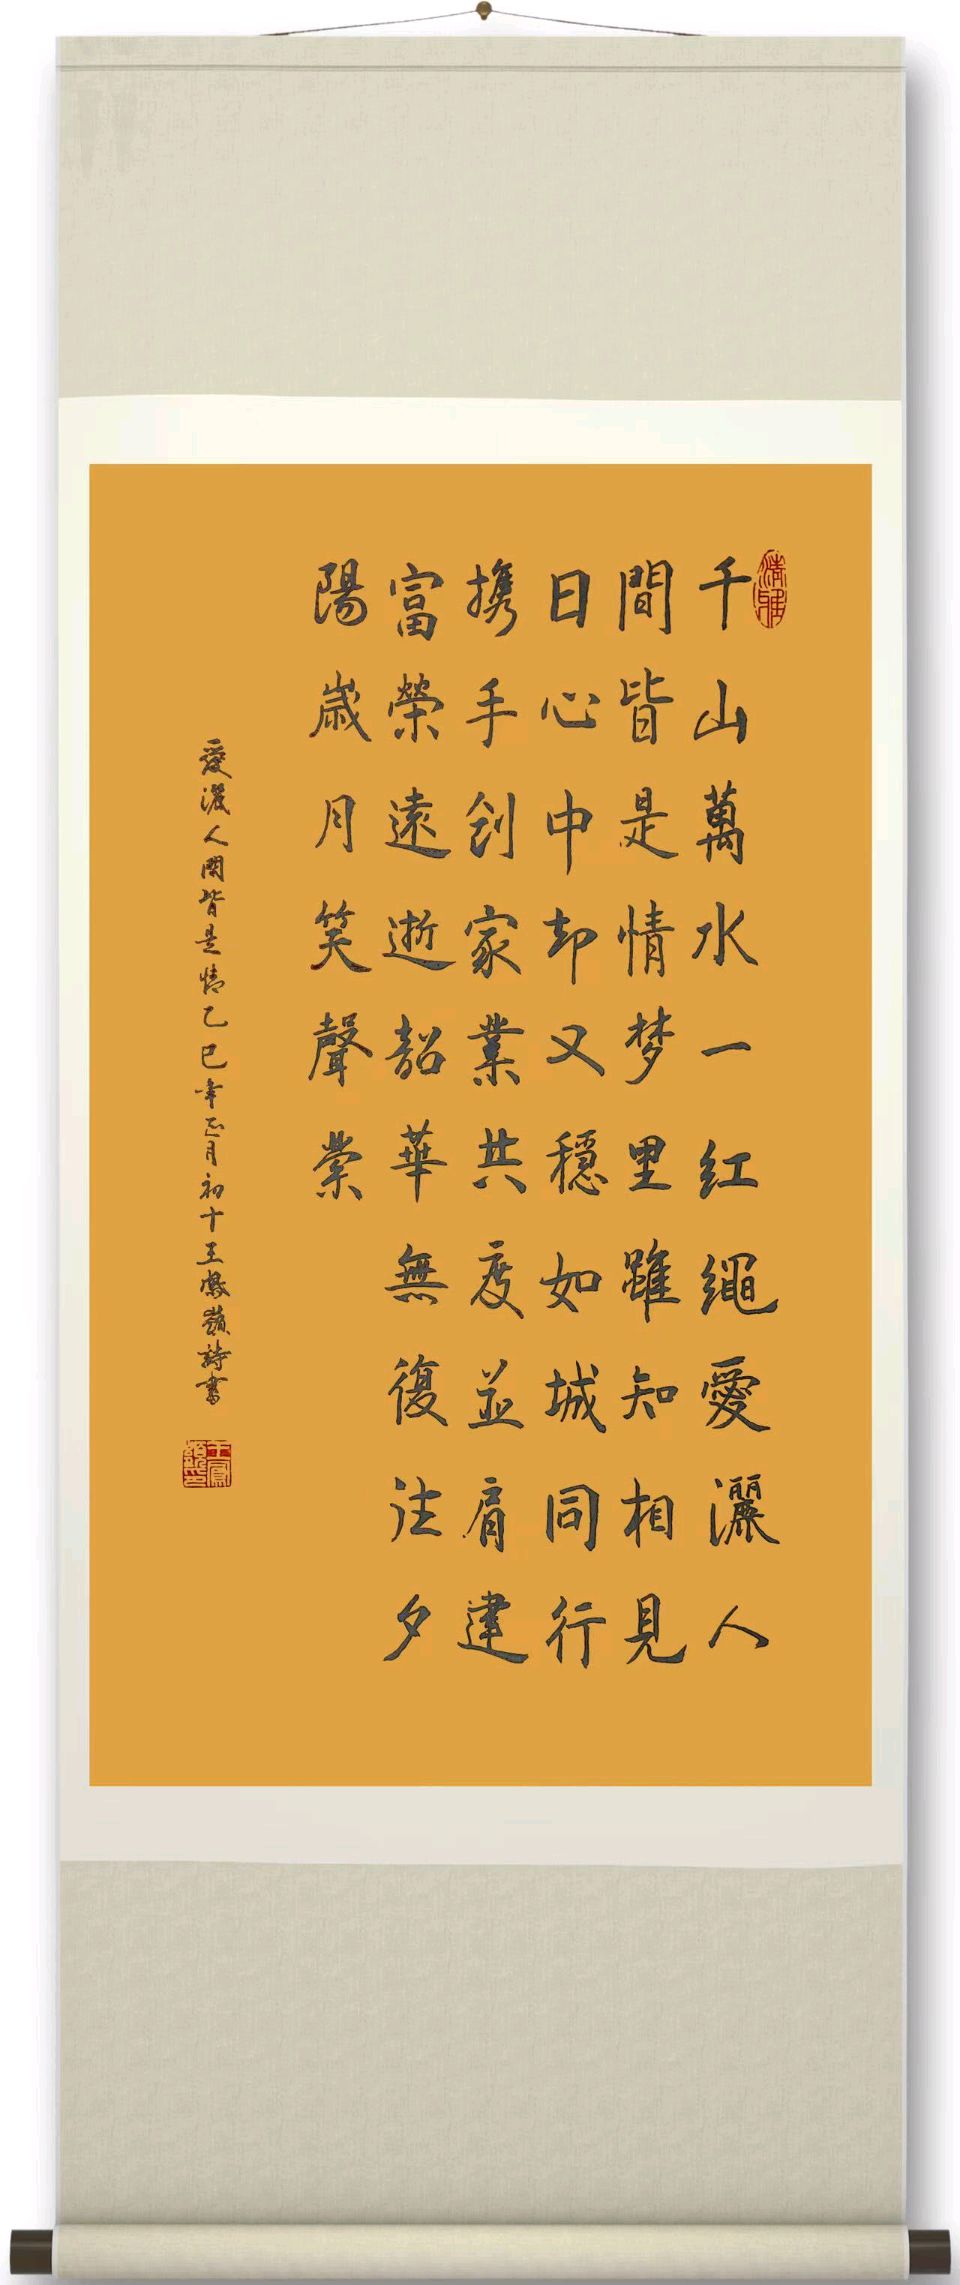 千山萬水一红繩愛灑人
間皆是情梦里雖知相見
日心中却又穩如城同行
携手创家業共度並肩建
富榮遠逝韶華無復注夕
陽歳月笑聲縈
愛灑人間皆是情乙巳年正月初十王鳳嶺詩書